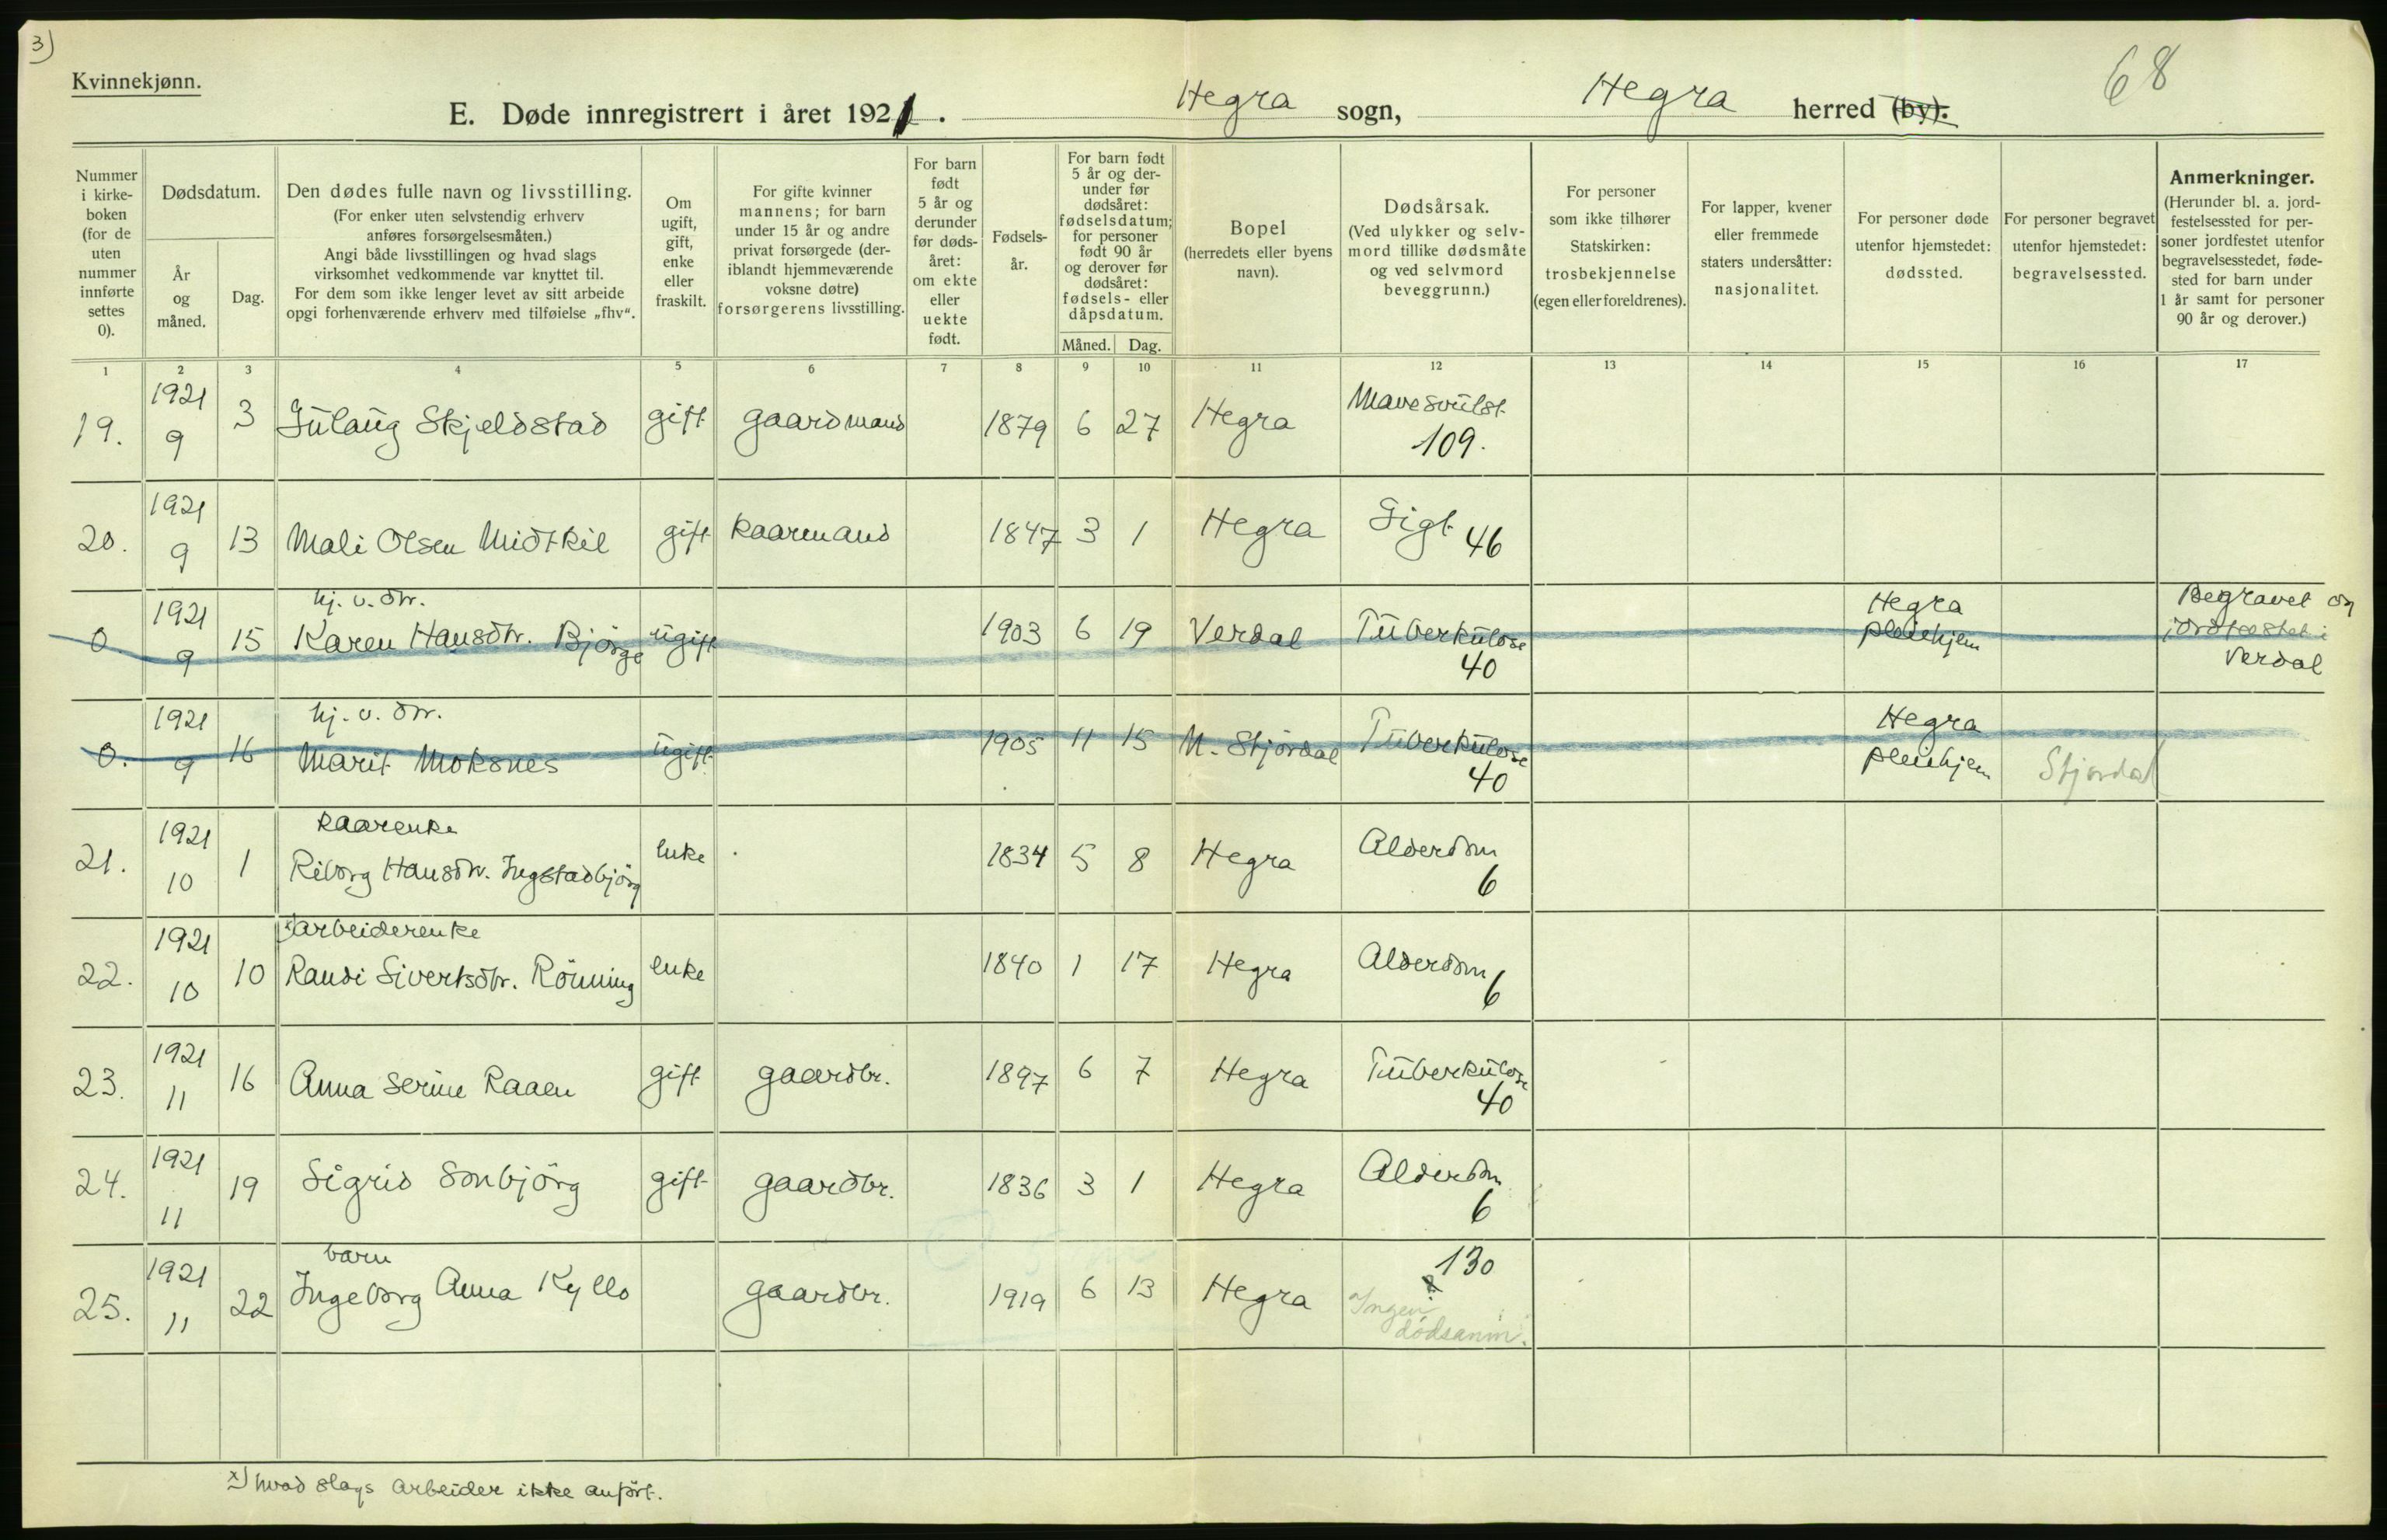 3)
68
Kvinnekjønn.
E. Døde innregistrert i året 1921. Hegra sogn, Hegra herred (by).
Nummer i kirke-boken (for de uten nummer innførte settes 0).
Dødsdatum.
År og måned.
Dag.
Den dødes fulle navn og livsstilling.
(For enker uten selvstendig erhverv
anføres forsørgelsesmåten.)
Angi både livsstillingen og hvad slags
virksomhet vedkommende var knyttet til.
For dem som ikke lenger levet av sitt arbeide
opgi forhenværende erhverv med tilføielse „fhv“.
Om ugift, gift, enke eller fraskilt.
For gifte kvinner
mannens; for barn
under 15 år og andre
privat forsørgede (der-
iblandt hjemmeværende
voksne døtre)
forsørgerens livsstilling.
For barn født 5 år og derunder før døds-året: om ekte eller uekte født.
Fødsels-år.
For barn født
5 år og der-
under før
dødsåret:
fødselsdatum;
for personer
født 90 år
og derover før
dødsåret:
fødsels- eller
dåpsdatum.
Måned. Dag.
Bopel
(herredets eller byens
navn).
Dødsårsak.
(Ved ulykker og selv-
mord tillike dødsmåte
og ved selvmord
beveggrunn.)
For personer
som ikke tilhører
Statskirken:
trosbekjennelse
(egen eller foreldrenes).
For lapper, kvener
eller fremmede
staters undersåtter:
nasjonalitet.
For personer døde
utenfor hjemstedet:
dødssted.
For personer begravet
utenfor hjemstedet:
begravelsessted.
Anmerkninger.
(Herunder bl. a. jord-
festelsessted for per-
soner jordfestet utenfor
begravelsesstedet, føde-
sted for barn under
1 år samt for personer
90 år og derover.)
1 2 3 4 5 6 7 8 9 10 11 12 13 14 15 16 17
19. 1921 9 3 Gulaug Skjeldstad gift gaardmand 1879 6 27 Hegra Mavesvulst 109.
20. 1921 9 13 Mali Olsen Midtkil gift kaarmand 1847 3 1 Hegra Sigt 46
hj. v. dtr.
0. 1921 9 15 Karen Hansdtr. Bjørge ugift 1903 6 19 Verdal Tuberkulose 40 Hegra pleiehjem Begravet og jordfæstet i Verdal
hj. v. dtr.
0. 1921 9 16 Marit Moksnes ugift 1905 11 15 N. Stjørdal Tuberkulose 40 Hegra pleiehjem Stjørdal
kaarenke
21. 1921 10 1 Riborg Hansdtr. Ingstadbjørg enke 1834 5 8 Hegra Alderdom 6
x) arbeiderenke
22. 1921 10 10 Randi Sivertsdtr. Rönning enke 1840 1 17 Hegra Alderdom 6
23. 1921 11 16 Anna Serine Raaen gift gaardbr. 1897 6 7 Hegra Tuberkulose 40
24. 1921 11 19 Sigrid Sonbjörg gift gaardbr. 1836 3 1 Hegra Alderdom 6
barn
25. 1921 11 22 Ingeborg Anna Kyllo gaardbr. 1919 6 13 Hegra 130 ? Ingen dødsanm.
x) hvad slags arbeider ikke anført.